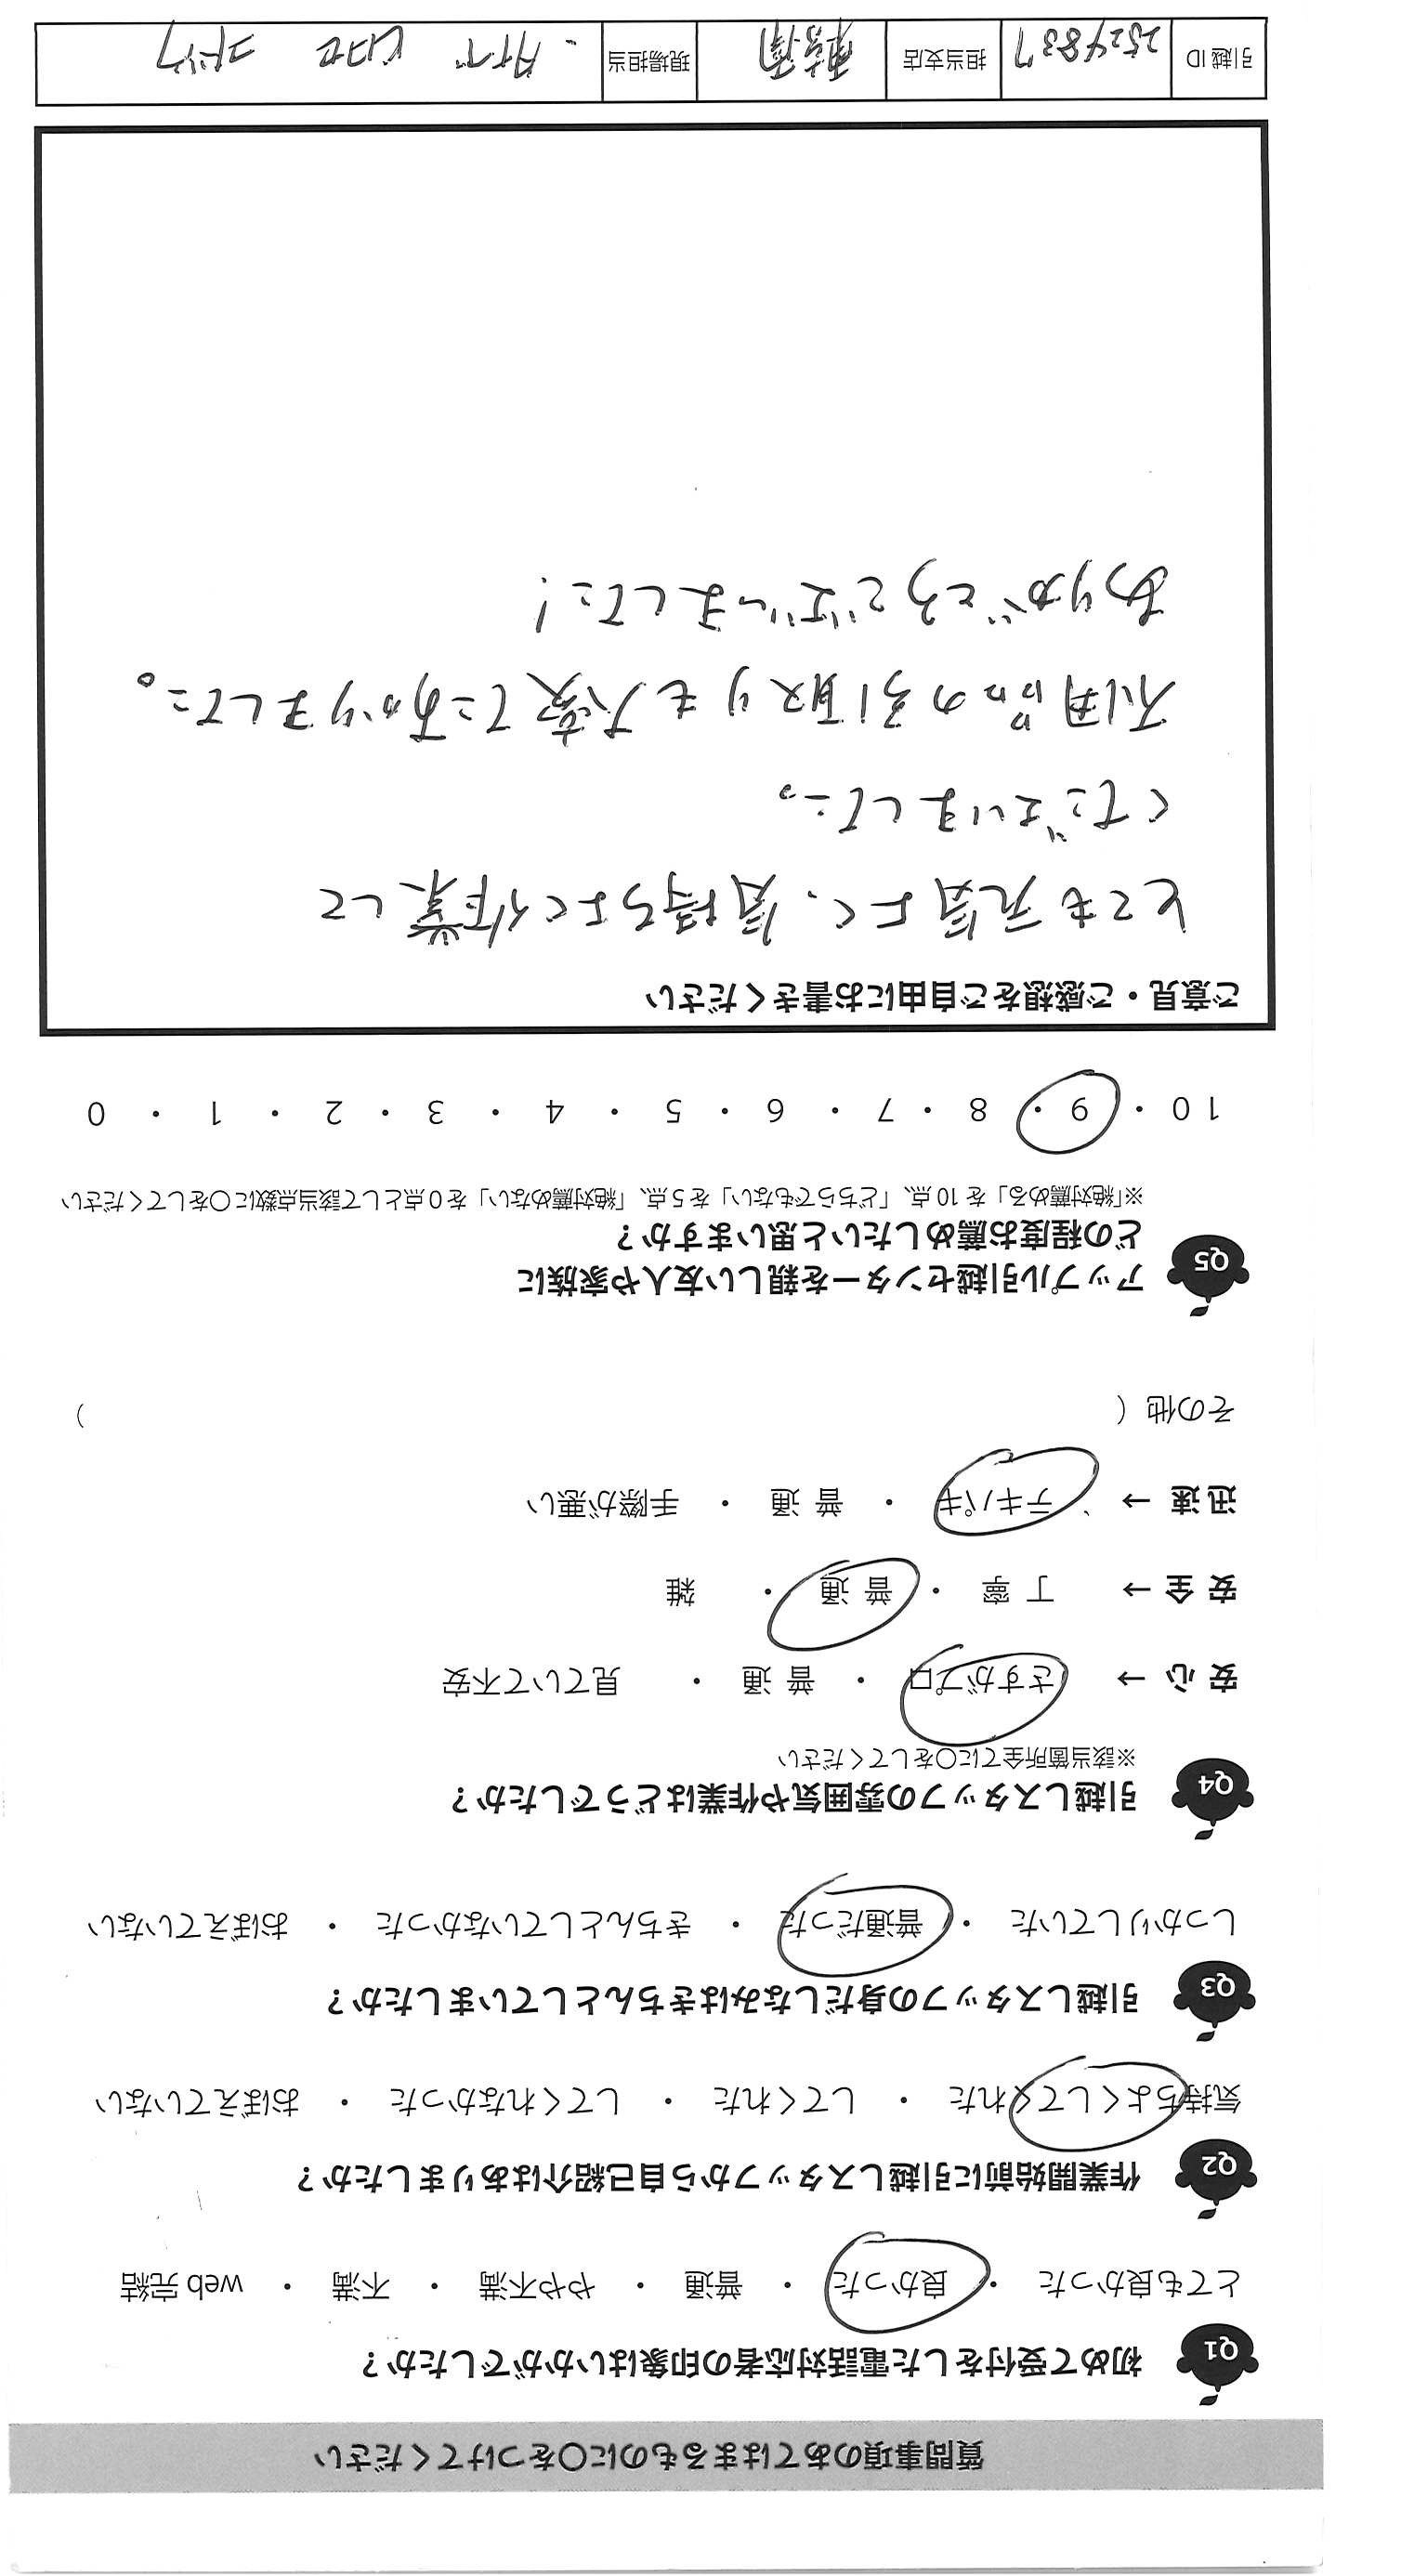 質問事項のあてはまるものに〇をつけてください
Q1 初めて受付をした電話対応者の印象はいかがでしたか？
とても良かった ・ 良かった ・ 普通 ・ やや不満 ・ 不満 ・ web 完結
Q2 作業開始前に引越しスタッフから自己紹介はありましたか？
気持ちよくしてくれた ・ してくれた ・ してくれなかった ・ おぼえていない
Q3 引越しスタッフの身だしなみはきちんとしていましたか？
しっかりしていた ・ 普通だった ・ きちんとしていなかった ・ おぼえていない
Q4 引越しスタッフの雰囲気や作業はどうでしたか？
※該当箇所全てに〇をしてください
安心 → さすがプロ ・ 普通 ・ 見ていて不安
安全 → 丁寧 ・ 普通 ・ 雑
迅速 → テキパキ ・ 普通 ・ 手際が悪い
その他 （ ）
Q5 アップル引越センターを親しい友人や家族に
どの程度お薦めしたいと思いますか？
※「絶対薦める」を 10 点、「どちらでもない」を 5 点、「絶対薦めない」を 0 点として該当点数に〇をしてください
10 ・ 9 ・ 8 ・ 7 ・ 6 ・ 5 ・ 4 ・ 3 ・ 2 ・ 1 ・ 0
ご意見・ご感想をご自由にお書きください
とても元気よく、気持ちよく作業して
くださいました。
不用品の引取りも大変たすかりました。
ありがとうございました！
引越 ID 2524837 担当支店 現場担当